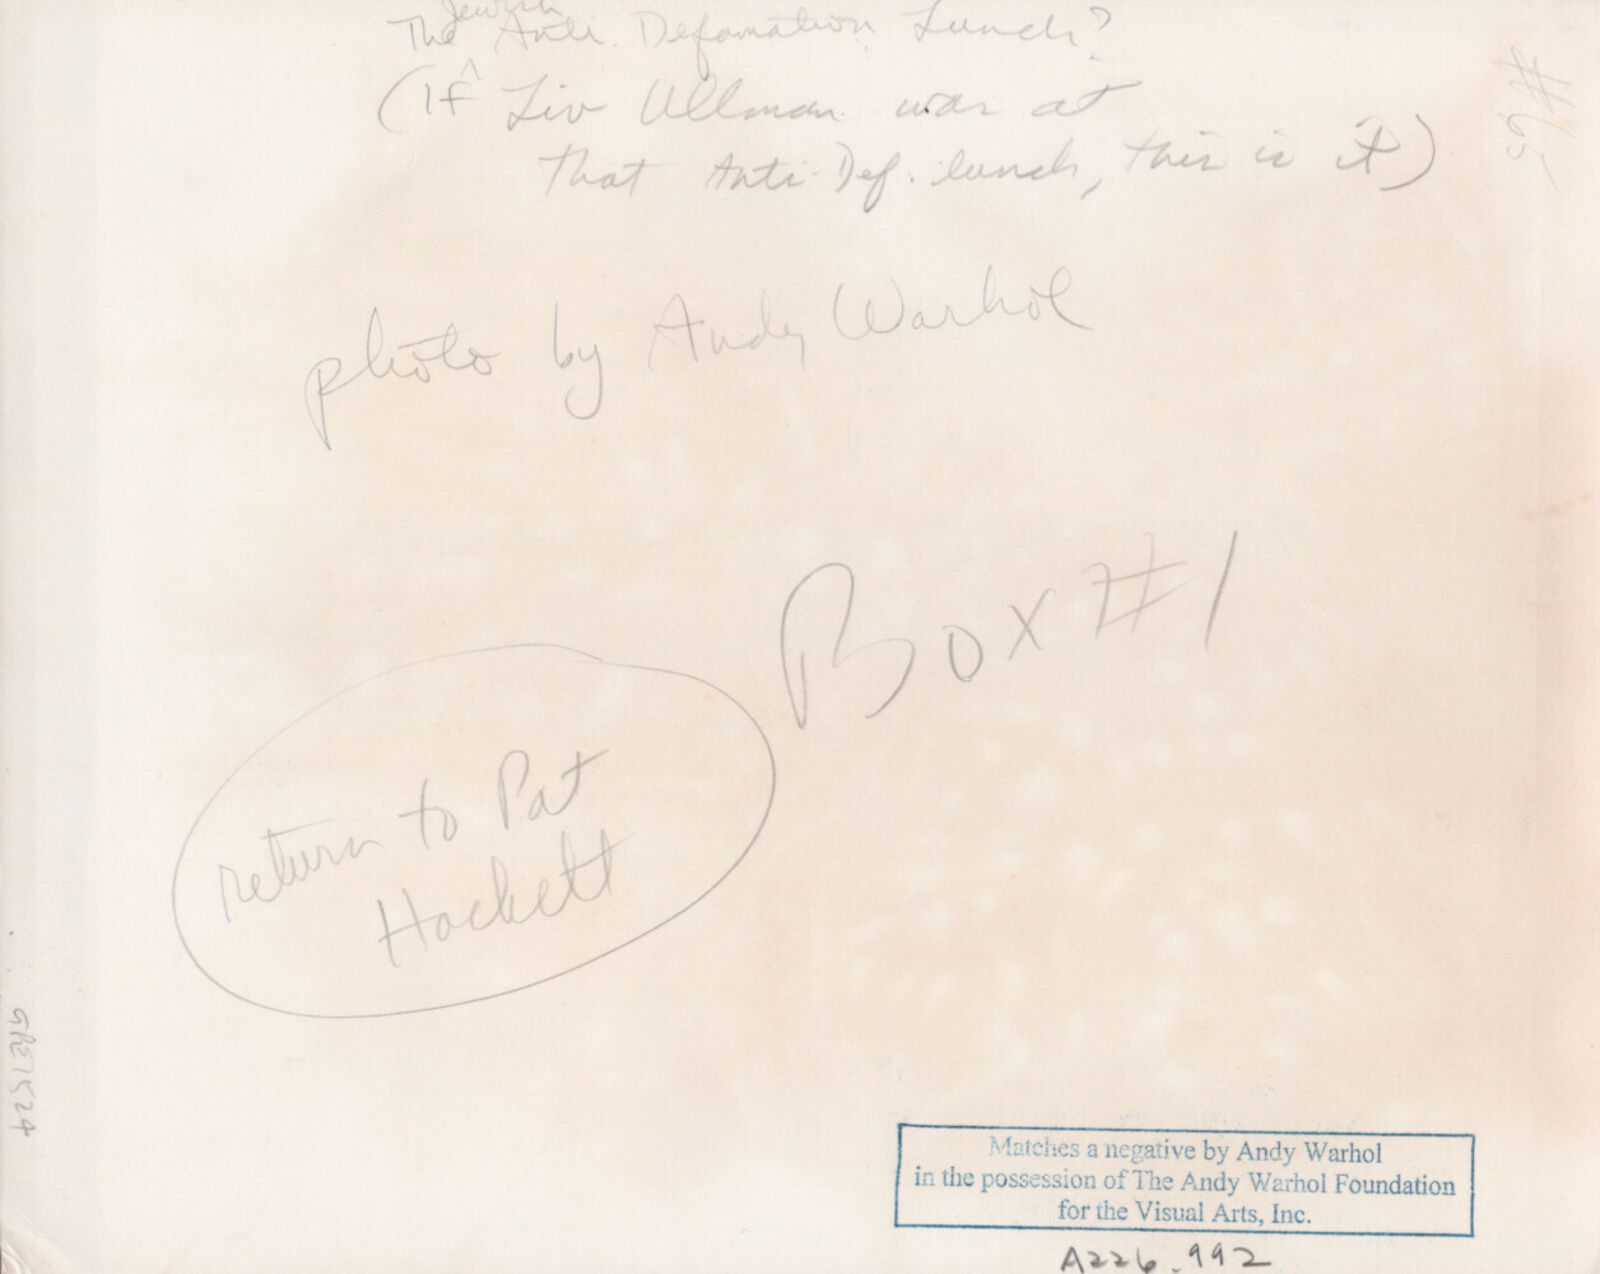 The ^Jewish Anti Defamation Lunch?
(If Liv Ullman was at
that Anti-Def. lunch, this is it)
photo by Andy Warhol
Box #1
return to Pat
Hackett
Matches a negative by Andy Warhol
in the possession of The Andy Warhol Foundation
for the Visual Arts, Inc.
A226.992